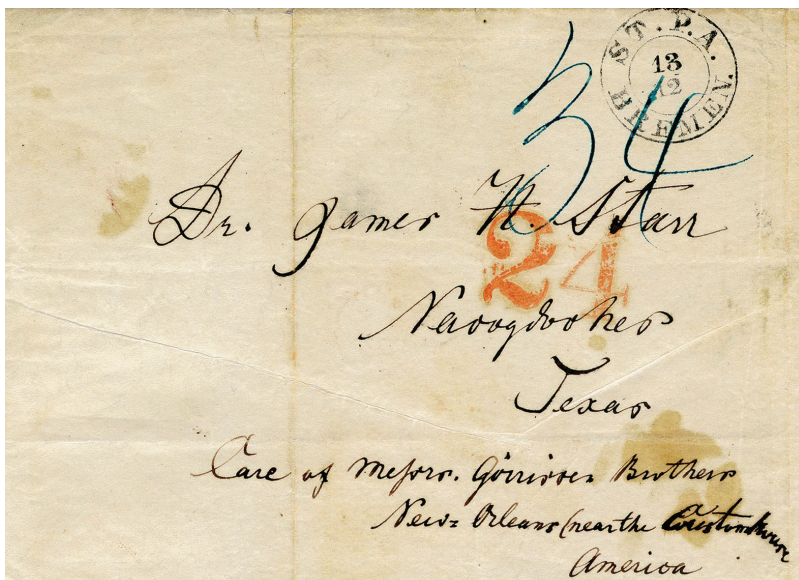 ST. P. A.
13
12
BREMEN.
34
Dr. James H. Starr
24
Nacogdoches
Texas
Care of Messrs. Görrissen Brothers
New=Orleans (near the Customhouse
America